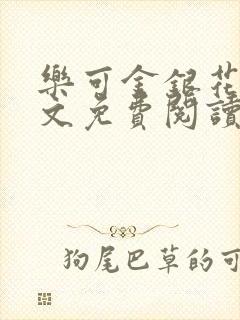 樂可金銀花
文免費閱讀
狗尾巴草的可